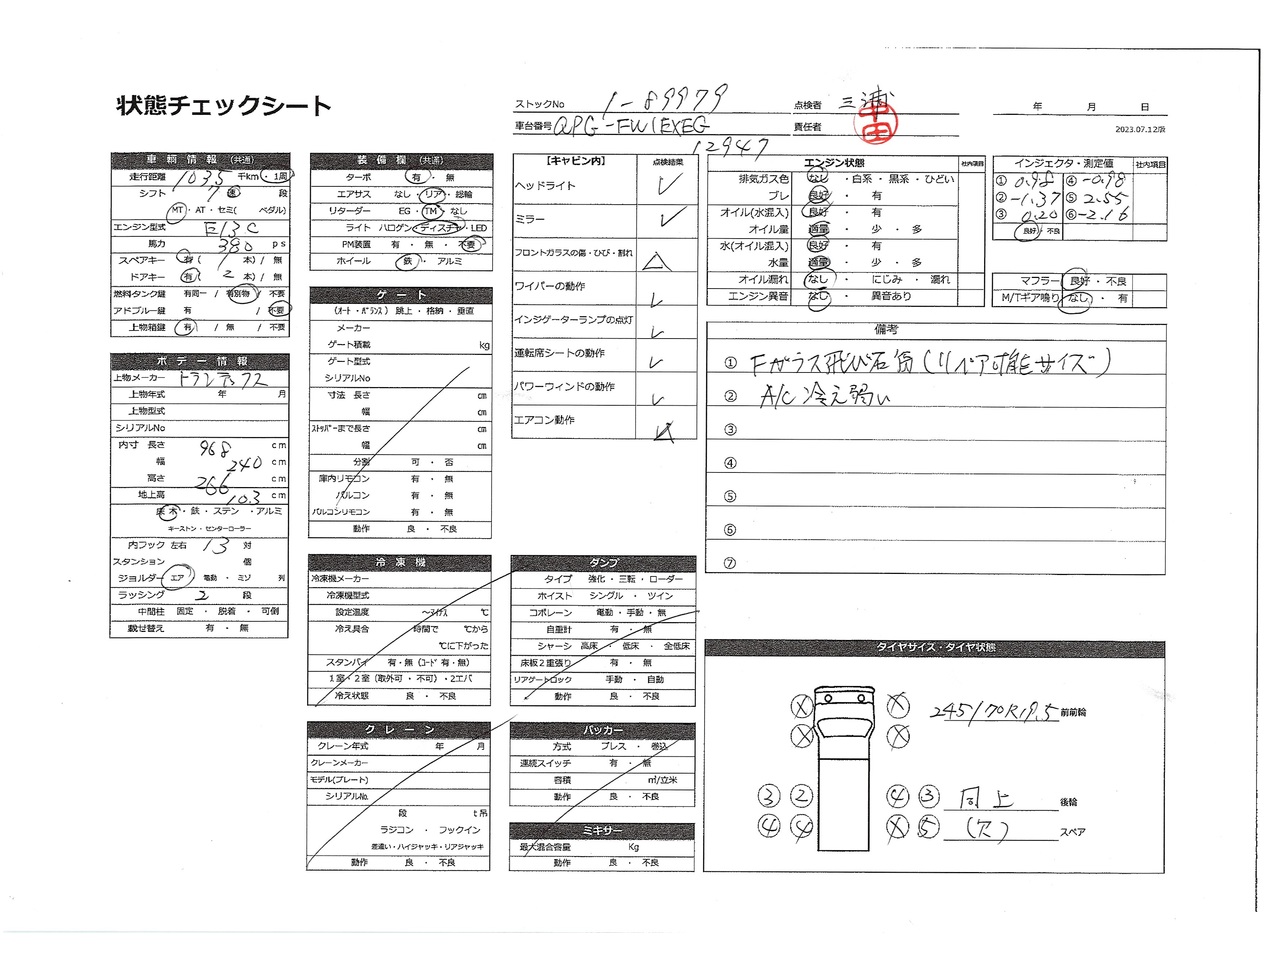 状態チェックシート
ストックNo 1-89979
点検者 三浦
年 月 日
車台番号 QPG-FW1EXEG
12947
責任者
中田
2023.07.12版
車輌情報(共通)
走行距離 1035 千km・1周
シフト 7 速 段
MT・AT・セミ( ペダル)
エンジン型式 E13C
馬力 380 ps
スペアキー 有( 1 本) / 無
ドアキー 有( 2 本) / 無
燃料タンク鍵 有同一 / 有別物 / 不要
アドブルー鍵 有 / 不要
上物箱鍵 有 / 無 / 不要
ボデー情報
上物メーカー トランテックス
上物年式 年 月
上物型式
シリアルNo
内寸 長さ 968 cm
幅 240 cm
高さ 266 cm
地上高 103 cm
床 木・鉄・ステン・アルミ
キーストン・センターコーラー
内フック 左右 13 対
スタンション 個
ジョルダー エア 電動・ミゾ 列
ラッシング 2 段
中間柱 固定・脱着・可倒
載せ替え 有・無
装備欄(共通)
ターボ 有・無
エアサス なし・リア・総輪
リターダー EG・TM・なし
ライト ハロゲン・ディスチャ・LED
PM装置 有・無・不要
ホイール 鉄・アルミ
ゲート
(オート・バランス) 跳上・格納・垂直
メーカー
ゲート積載 kg
ゲート型式
シリアルNo
寸法 長さ cm
幅 cm
ストッパーまで長さ cm
幅 cm
分割 可・否
庫内リモコン 有・無
バルコン 有・無
バルコンリモコン 有・無
動作 良・不良
冷凍機
冷凍機メーカー
冷凍機型式
設定温度 ～マイナス ℃
冷え具合 時間で ℃から
℃に下がった
スタンバイ 有・無(コード 有・無)
1室・2室(取外可・不可)・2エバ
冷え状態 良・不良
クレーン
クレーン年式 年 月
クレーンメーカー
モデル(プレート)
シリアルNo.
段 t吊
ラジコン・フックイン
差違い・ハイジャッキ・リアジャッキ
動作 良・不良
【キャビン内】 点検結果
ヘッドライト ✓
ミラー ✓
フロントガラスの傷・ひび・割れ △
ワイパーの動作 ✓
インジケーターランプの点灯 ✓
運転席シートの動作 ✓
パワーウィンドの動作 ✓
エアコン動作
ダンプ
タイプ 強化・三転・ローダー
ホイスト シングル・ツイン
コボレーン 電動・手動・無
自重計 有・無
シャーシ 高床・低床・全低床
床板2重張り 有・無
リアゲートロック 手動・自動
動作 良・不良
パッカー
方式 プレス・巻込
連続スイッチ 有・無
容積 ㎥/立米
動作 良・不良
ミキサー
最大混合容量 Kg
動作 良・不良
エンジン状態 社内項目
排気ガス色 なし・白系・黒系・ひどい
ブレ 良好・有
オイル(水混入) 良好・有
オイル量 適量・少・多
水(オイル混入) 良好・有
水量 適量・少・多
オイル漏れ なし・にじみ・漏れ
エンジン異音 なし・異音あり
インジェクタ・測定値 社内項目
① 0.98 ④ -0.98
② -1.37 ⑤ 2.55
③ 0.20 ⑥ -2.16
良好/不良
マフラー 良好・不良
M/Tギア鳴り なし・有
備考
① Fガラス飛び石傷(リペア可能サイズ)
② A/C冷え弱い
③
④
⑤
⑥
⑦
タイヤサイズ・タイヤ状態
X X 245/70R19.5 前前輪
X X
3 2 4 3 同上 後輪
4 4 X 5 (欠) スペア